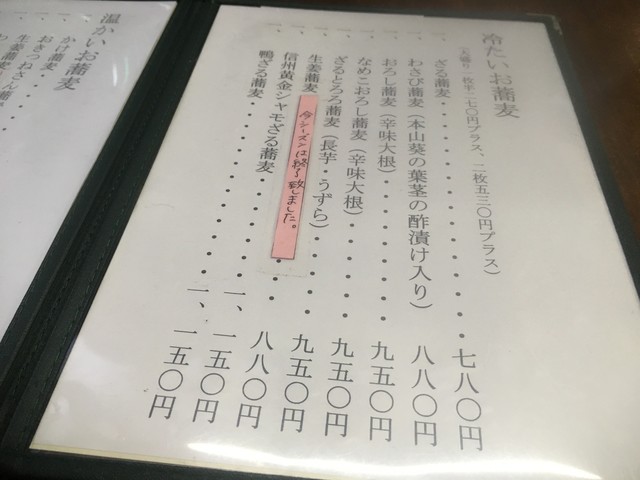 冷たいお蕎麦
一、ざる蕎麦 七八〇円
一、わさび蕎麦(本山葵の葉茎の酢漬け入り) 八八〇円
一、おろし蕎麦(辛味大根) 九五〇円
一、なめこおろし蕎麦(辛味大根) 九五〇円
一、ざるとろろ蕎麦(長芋・うずら) 九五〇円
一、生姜蕎麦 八八〇円
今シーズンは終了致しました。
一、信州黄金シャモざる蕎麦 一、一五〇円
一、鴨ざる蕎麦 一、一五〇円
温かいお蕎麦
かけ蕎麦
おきつねさん蕎
生姜蕎麦